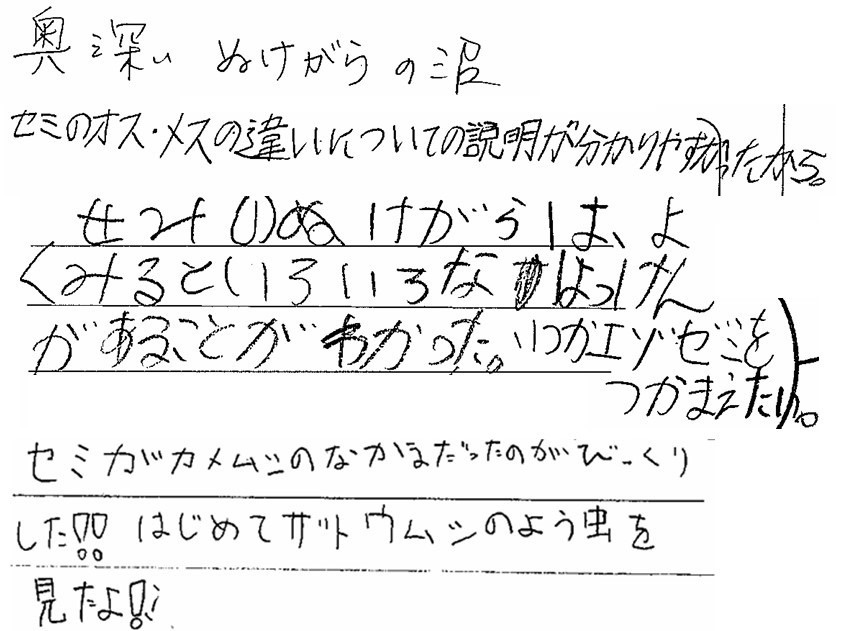 奥深い ぬけがらの沼
セミのオス・メスの違いについての説明が分かりやすかったから。
せみのぬけがらは、よ
くみるといろいろなはっけん
があることがわかった。いつかエゾゼミを
つかまえたい。
セミがカメムシのなかまだったのがびっくり
した!! はじめてサットウムシのよう虫を
見たよ!!